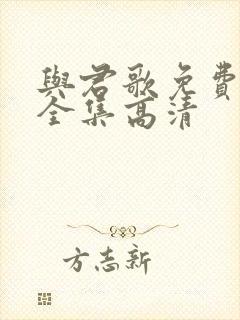 與君歌免費
全集高清
方志新